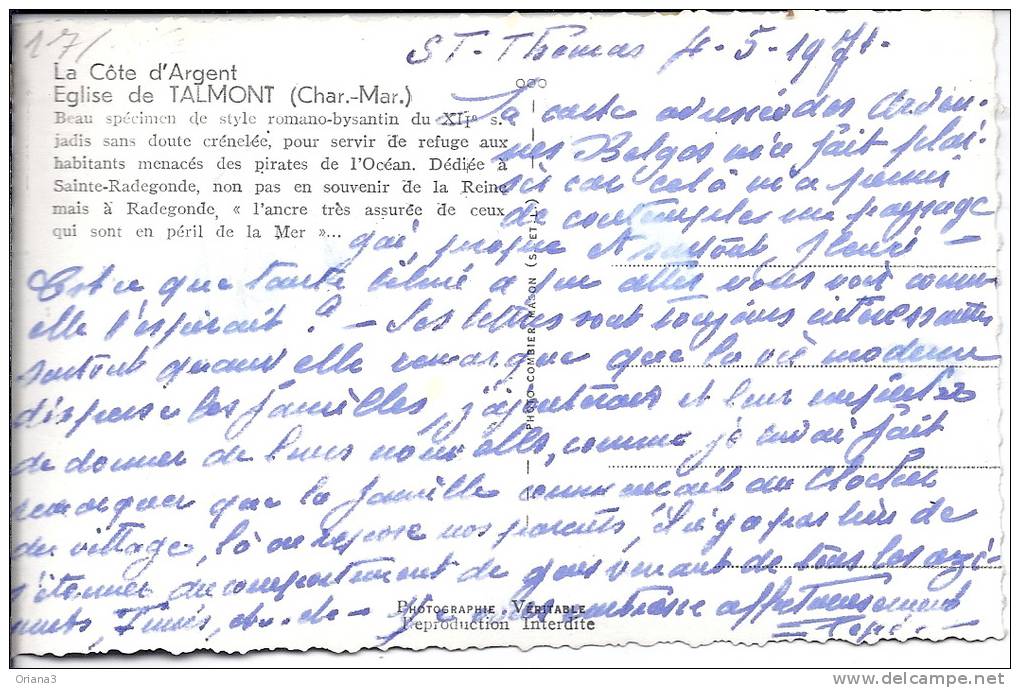 17/
ST-Thomas 4-5-1971.
La Côte d'Argent
Eglise de TALMONT (Char.-Mar.)
Beau spécimen de style romano-bysantin du XIIe s.
jadis sans doute crénelée, pour servir de refuge aux
habitants menacés des pirates de l'Océan. Dédiée à
Sainte-Radegonde, non pas en souvenir de la Reine
mais à Radegonde, « l'ancre très assurée de ceux
qui sont en péril de la Mer »...
La carte des Arden-
nes Belges m'a fait plai-
sir car celà m'a permis
de contempler un paysage
gai, propre et surtout fleuri -
Est ce que tante a pu aller vous voir comme
elle l'espérait ? - Ses lettres sont toujours intéressantes
surtout quand elle remarque que la vie moderne
disperse les familles, j'ajouterais et leur
de donner de leurs nouvelles, comme je lui ai fait
remarquer que la famille au clocher
du village, là où repose nos parents, il n'y a pas lieu de
s'étonner du comportement de gens venant de tous les
Tunis, etc. etc - Je vous embrasse affectueusement
PHOTO COMBIER MACON (S. ET L.)
PHOTOGRAPHIE VÉRITABLE
Reproduction Interdite
Oriana3
http://www.delcampe.net